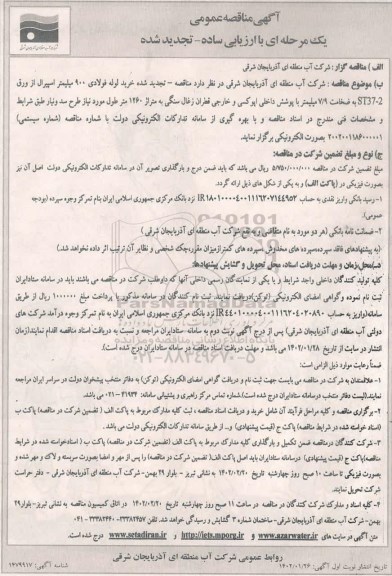 آگهی مناقصه عمومی
یک مرحله ای با ارزیابی ساده- تجدید شده
الف ) مناقصه گزار : شرکت آب منطقه ای آذربایجان شرقی
ب) موضوع مناقصه : شرکت آب منطقه ای آذربایجان شرقی در نظر دارد مناقصه – تجدید شده خرید لوله فولادی ۹۰۰ میلیمتر اسپیرال از ورق
ST37-2 به ضخامت ۷/۹ میلیمتر با پوشش داخلی اپوکسی و خارجی قطران زغال سنگی به متراژ ۱۲۶۰ متر طول مورد نیاز طرح سد ونیار طبق شرایط و
مشخصات فنی مندرج در اسناد مناقصه و با بهره گیری از سامانه تدارکات الکترونیکی دولت با شماره مناقصه (شماره سیستمی)
بصورت الکترونیکی برگزار نمایند.
ج) نوع و مبلغ تضمین شرکت در مناقصه:
مبلغ تضمین شرکت در مناقصه ۵/۷۵۰/۰۰۰/۰۰۰ ریال می باشد که باید ضمن درج و بارگذاری تصویر آن در سامانه تدارکات الکترونیکی دولت اصل آن نیز
بصورت فیزیکی در (پاکت الف) و به یکی از شکل های ذیل ارائه گردد.
۱- رسید بانکی واریز نقدی به حساب نزد بانک مرکزی جمهوری اسلامی ایران بنام تمرکز وجوه سپرده (بودجه
عمومی).
۲- ضمانت نامه بانکی (هر دو مورد به نام متقاضی و به نفع شرکت آب منطقه ای آذربایجان شرقی )
(به پیشنهادهای فاقد سپرده سپرده های مخدوش، سپرده های کمتر از میزان مقرر، چک شخصی و نظایر آن ترتیب اثر داده نخواهد شد.)
د) محل زمان و مهلت دریافت اسناد، محل تحویل و گشایش پیشنهادها:
کلیه تولید کنندگان داخلی واجد شرایط و یا یکی از نمایندگان رسمی داخلی آنها که داوطلب شرکت در مناقصه می باشند باید در سامانه ستاد ایران
ثبت نام نموده و گواهی امضای الکترونیکی (توکن) دریافت نمایند. ثبت نام کنندگان در سامانه مذکور، با پرداخت مبلغ ۱۰۰۰۰۰۰ ریال از طریق
سامانه (واریز به حساب نزد بانک مرکزی جمهوری اسلامی ایران به نام تمرکز وجوه درآمد شرکت های
دولتی آب منطقه ای آذربایجان شرقی) پس از درج آگهی نوبت دوم به سامانه ستاد ایران مراجعه و نسبت به دریافت اسناد مناقصه اقدام نمایند (زمان
انتشار در سایت از تاریخ ۱۴۰۲/۰۱/۲۸ می باشد و مهلت دریافت اسناد مناقصه در سامانه ستاد ایران درج شده است).
ضمناً رعایت موارد ذیل الزامی است:
۱- علاقمندان به شرکت در مناقصه می بایست جهت ثبت نام و دریافت گواهی امضای الکترونیکی (توکن) به دفاتر منتخب پیشخوان دولت در سراسر ایران مراجعه
نمایند. (لیست دفاتر منتخب در سامانه ستاد ایران درج شده است). شماره تماس مرکز راهبری و پشتیبانی سامانه: ۴۱۹۳۴ -۰۲۱ می باشد.
۲- برگزاری مناقصه و کلیه مراحل فرآیند آن شامل خرید و دریافت اسناد مناقصه ، ثبت کلیه مدارک مربوط به پاکت الف ( تضمین شرکت در مناقصه) پاکت ب
(اسناد خواسته شده در شرایط مناقصه) پاکت ج (قیمت پیشنهادی) و... از طریق سامانه تدارکات الکترونیکی دولت می باشد .
۳- شرکت کنندگان در مناقصه ضمن تکمیل و بارگذاری کلیه مدارک مربوط به پاکت الف (تضمین شرکت در مناقصه) پاکت ب ( اسناد خواسته شده در شرایط
مناقصه) پاکت ج (قیمت پیشنهادی) در سامانه ستاد ایران باید اصل پاکت الف( تضمین شرکت در مناقصه) را پس از مهر و امضا بصورت سربسته و لاک و مهر شده و
بصورت فیزیکی تا ساعت ۱۰ صبح روز چهارشنبه تاریخ ۱۴۰۲/۰۲/۲۰ به نشانی تبریز - بلوار ۲۹ بهمن- شرکت آب منطقه ای آذربایجان شرقی - دفتر حراست
شرکت تحویل نمایند.
۴- کلیه اسناد و مدارک شرکت کنندگان در مناقصه در ساعت ۱۱ صبح روز چهارشنبه تاریخ ۱۴۰۲/۰۲/۲۰ در اتاق کمیسیون مناقصه به نشانی تبریز- بلوار ۲۹
بهمن- شرکت آب منطقه ای آذربایجان شرقی- ساختمان شماره ۳ گشایش و رسیدگی خواهد شد. تلفن
متن آگهی در سایت های www.azarwater.ir و http://iets.mporg.ir و www.setadiran.ir درج شده است.
روابط عمومی شرکت آب منطقه ای آذربایجان شرقی
تاریخ انتشار نوبت اول آگهی: ۱۴۰۲/۰۱/۲۶ شناسه آگهی: ۱۴۷۹۹۱۷